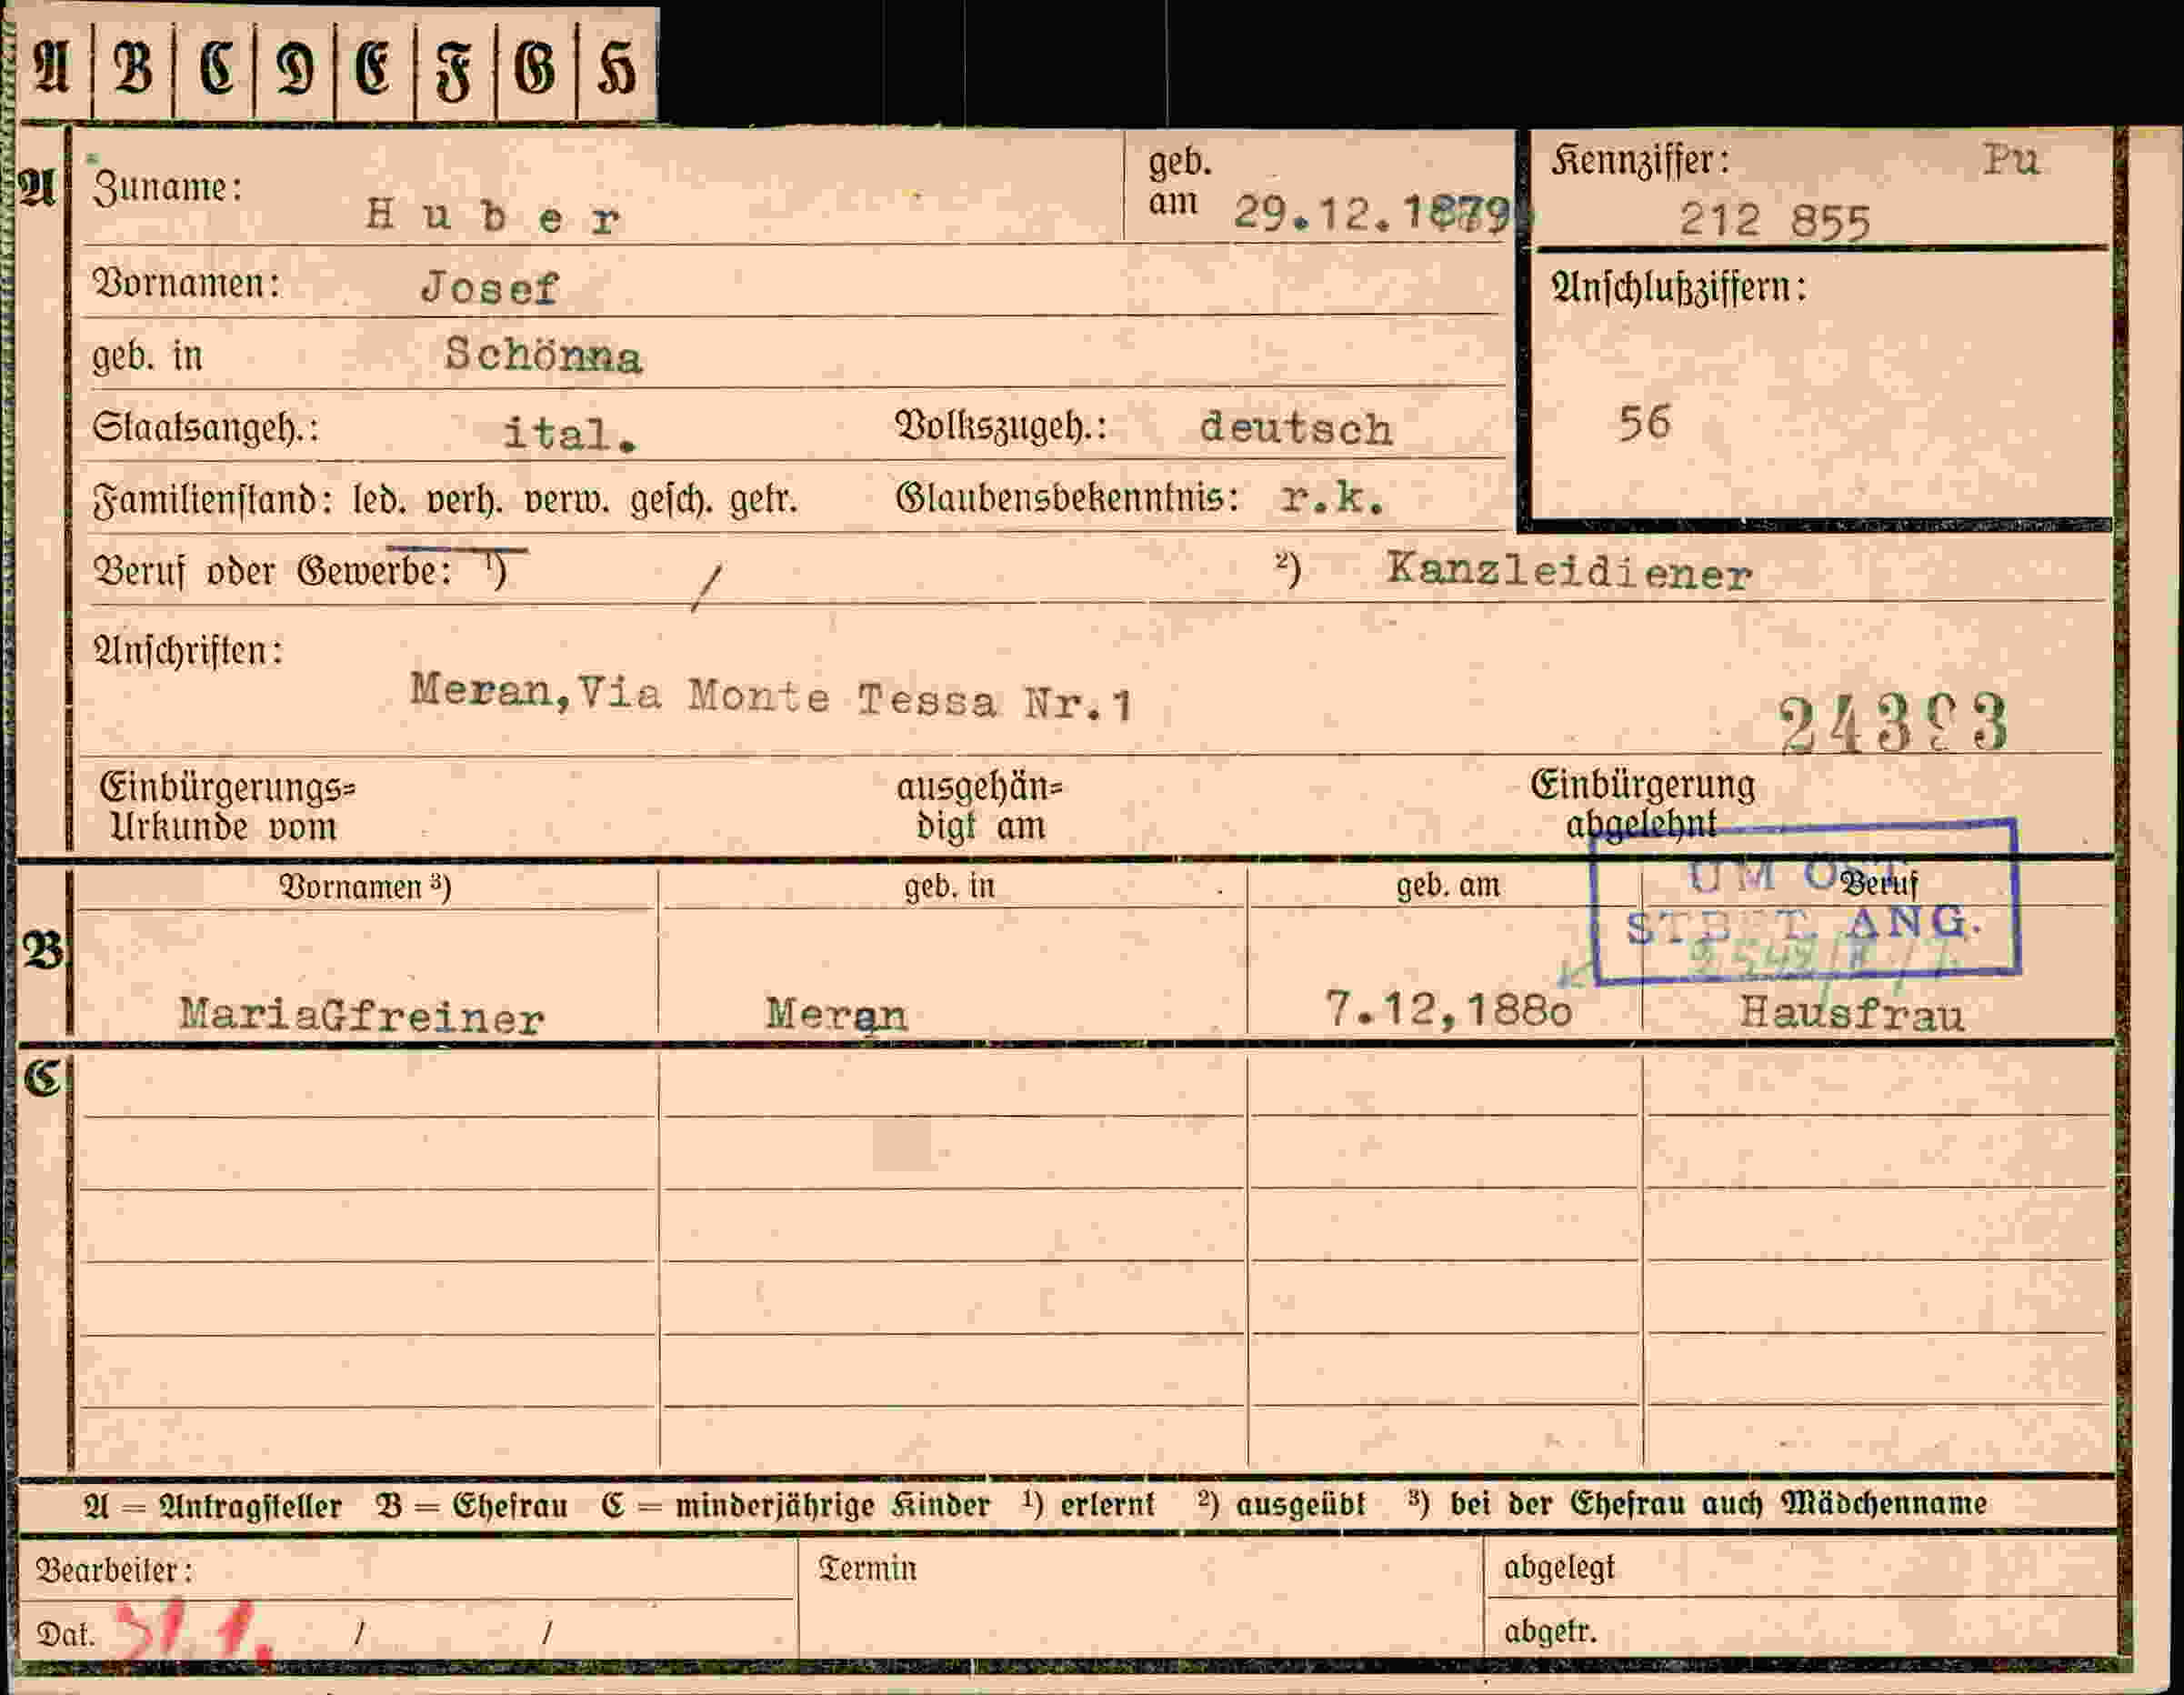 A B C D E F G H
A Zuname: Huber geb. am 29.12.1879 Kennziffer: Pu
212 855
Vornamen: Josef Anschlußziffern:
geb. in Schönna
Staatsangeh.: ital. Volkszugeh.: deutsch 56
Familienstand: led. verh. verw. gesch. getr. Glaubensbekenntnis: r.k.
Beruf oder Gewerbe: ¹) / ²) Kanzleidiener
Anschriften:
Meran,Via Monte Tessa Nr.1
Einbürgerungs= ausgehän= Einbürgerung
Urkunde vom digt am abgelehnt
Vornamen ³) geb. in geb. am Beruf
UM
ANG.
B
MariaGfreiner Meran 7.12,188o Hausfrau
C
A = Antragsteller B = Ehefrau C = minderjährige Kinder ¹) erlernt ²) ausgeübt ³) bei der Ehefrau auch Mädchenname
Bearbeiter: Termin abgelegt
Dat. 31.1. / / abgetr.